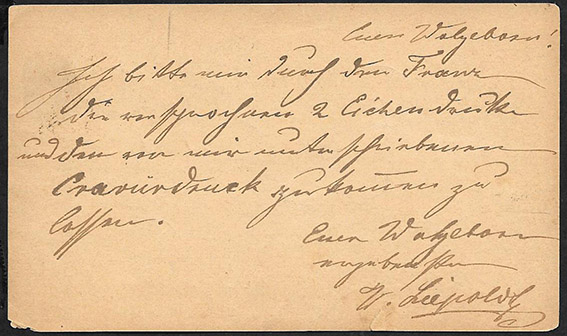 Euer Wolgeboren!
Ich bitte mir durch den Franz
die versprochnen 2 Eichendrucke
und den von mir unterschriebenen
Cravürdruck zukommen zu
lassen.
Euer Wolgeboren
ergebenster
Liepoldt